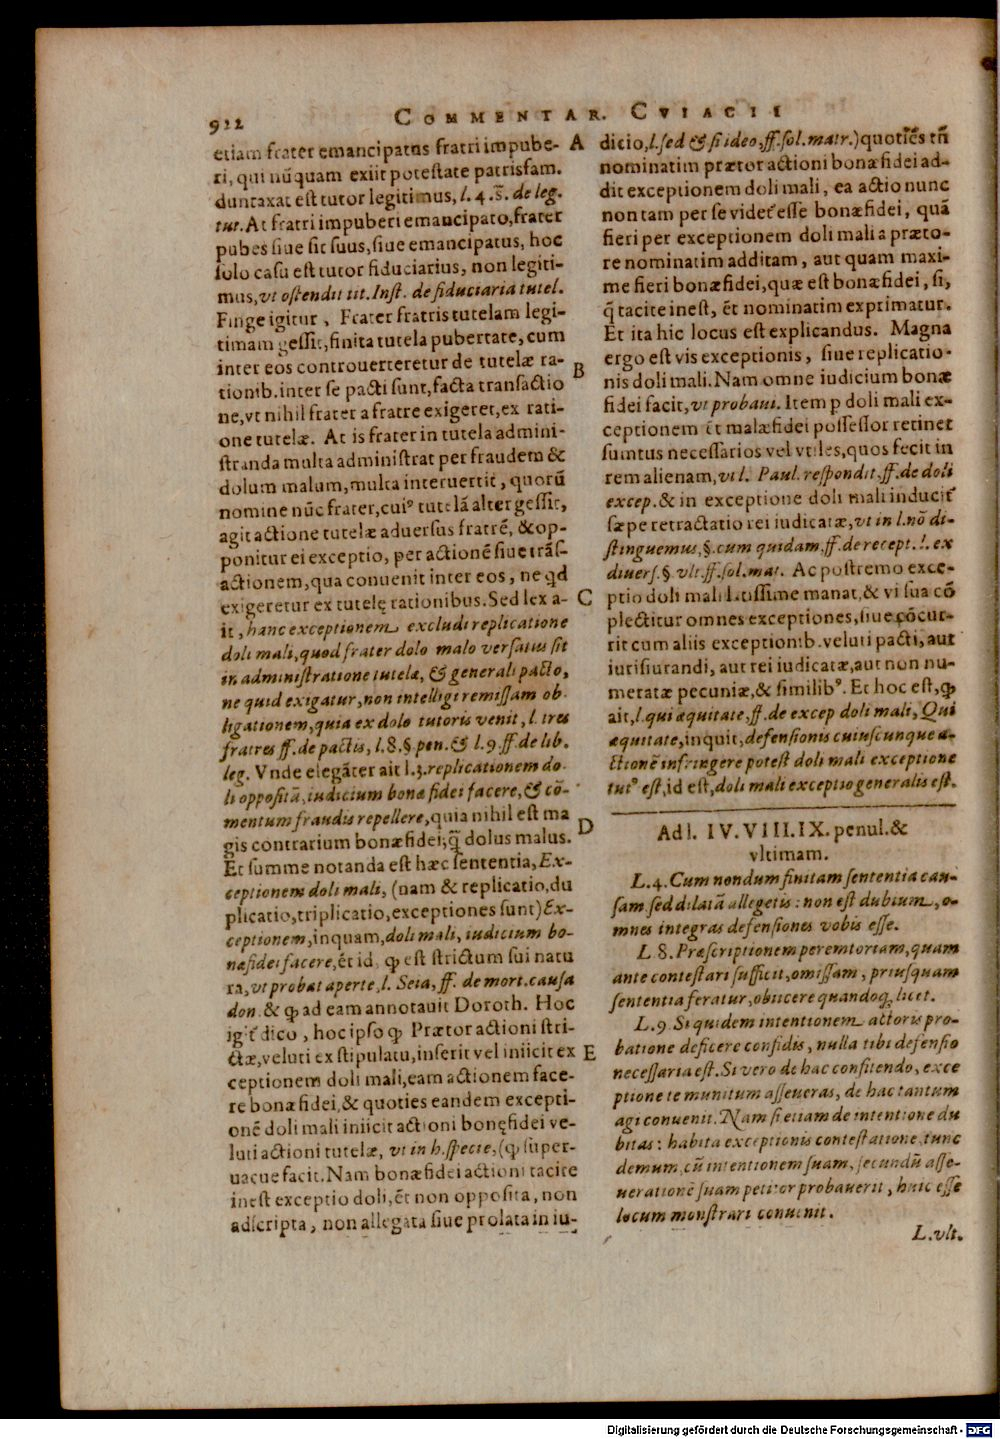 912
COMMENTAR. CVIACII
etiam frater emancipatus fratri impube-
ri, qui nũquam exiit potestate patrisfam.
duntaxat est tutor legitimus, l. 4. §. de leg.
tut. At fratri impuberi emancipato, frater
pubes siue sit suus, siue emancipatus, hoc
solo casu est tutor fiduciarius, non legiti-
mus, vt ostendit tit. Inst. de fiduciaria tutel.
Finge igitur, Frater fratris tutelam legi-
timam gessit, finita tutela pubertate, cum
inter eos controuerteretur de tutelæ ra-
tionib. inter se pacti sunt, facta transactio
ne, vt nihil frater a fratre exigeret, ex rati-
one tutelæ. At is frater in tutela admini-
stranda multa administrat per fraudem &
dolum malum, multa interuertit, quorũ
nomine nũc frater, cuiꝰ tutelã alter gessit,
agit actione tutelæ aduersus fratrẽ, & op-
ponitur ei exceptio, per actionẽ siue trãs-
actionem, qua conuenit inter eos, ne qd
exigeretur ex tutelę rationibus. Sed lex a-
it, hanc exceptionem excludi replicatione
doli mali, quod frater dolo malo versatus sit
in administratione tutelæ, & generali pacto,
ne quid exigatur, non intelligi remissam ob-
ligationem, quia ex dolo tutoris venit, l. tres
fratres ff. de pactis, l. 8. §. pen. & l. 9. ff. de lib.
leg. Vnde elegãter ait l. 3. replicationem do-
li oppositã, iudicium bonæ fidei facere, & cõ-
mentum fraudis repellere, quia nihil est ma
gis contrarium bonæfidei, q̃ dolus malus.
Et summe notanda est hæc sententia, Ex-
ceptionem doli mali, (nam & replicatio, du
plicatio, triplicatio, exceptiones sunt) Ex-
ceptionem, inquam, doli mali, iudicium bo-
næfidei facere, ẽt id, ꝙ est strictum sui natu
ra, vt probat aperte, l. Seia, ff. de mort. causa
don. & ꝙ ad eam annotauit Doroth. Hoc
igit̃ dico, hoc ipso ꝙ Prætor actioni stri-
ctæ, veluti ex stipulatu, inserit vel iniicit ex
ceptionem doli mali, eam actionem face-
re bonæfidei, & quoties eandem excepti-
onẽ doli mali iniicit actioni bonęfidei ve-
luti actioni tutelæ, vt in h. specie, (ꝙ super-
uacue facit. Nam bonæfidei actioni tacite
inest exceptio doli, ẽt non opposita, non
adscripta, non allegata siue prolata in iu-
A
B
C
D
E
dicio, l. sed & si ideo, ff. sol. matr.) quotiẽs tñ
nominatim prætor actioni bonæfidei ad-
dit exceptionem doli mali, ea actio nunc
non tam per se videt̃ esse bonæfidei, quã
fieri per exceptionem doli mali a præto-
re nominatim additam, aut quam maxi-
me fieri bonæfidei, quæ est bonæfidei, si,
q̃ tacite inest, ẽt nominatim exprimatur.
Et ita hic locus est explicandus. Magna
ergo est vis exceptionis, siue replicatio-
nis doli mali. Nam omne iudicium bonæ
fidei facit, vt probaui. Item p doli mali ex-
ceptionem ẽt malæfidei possessor retinet
sumtus necessarios vel vtiles, quos fecit in
rem alienam, vt l. Paul. respondit, ff. de doli
excep. & in exceptione doli mali inducit̃
sæpe retractatio rei iudicatæ, vt in l. nõ di-
stinguemus, §. cum quidam, ff. de recept. l. ex
diuers. §. vlt. ff. sol. mat. Ac postremo exce-
ptio doli mali latissime manat, & vi sua cõ
plectitur omnes exceptiones, siue cõcur-
rit cum aliis exceptionib. veluti pacti, aut
iurisiurandi, aut rei iudicatæ, aut non nu-
meratæ pecuniæ, & similibꝰ. Et hoc est, ꝙ
ait, l. qui æquitate, ff. de excep doli mali, Qui
æquitate, inquit, defensionis cuiuscunque a-
ctionẽ infringere potest doli mali exceptione
tutꝰ est, id est, doli mali exceptio generalis est.
Ad l. IV. VIII. IX. penul. &
vltimam.
L. 4. Cum nondum finitam sententia cau-
sam sed dilatã allegetis: non est dubium, o-
mnes integras defensiones vobis esse.
L 8. Præscriptionem peremtoriam, quam
ante contestari sufficit, omissam, priusquam
sententia feratur, obiicere quandoq; licet.
L. 9 Si quidem intentionem actoris pro-
batione deficere confidis, nulla tibi defensio
necessaria est. Si vero de hac confitendo, exce
ptione te munitum asseueras, de hac tantum
agi conuenit. Nam si etiam de intentione du
bitas: habita exceptionis contestatione, tunc
demum, cũ intentionem suam, secundũ asse-
uerationẽ suam petitor probauerit, huic esse
locum monstrari conuenit.
L. vlt.
Digitalisierung gefördert durch die Deutsche Forschungsgemeinschaft - DFG